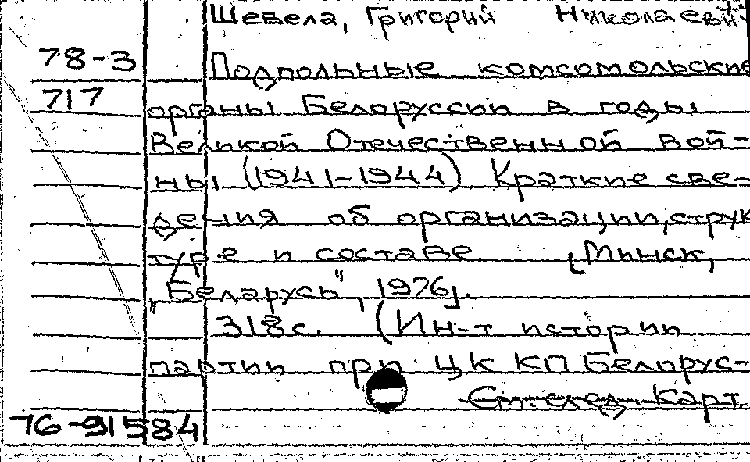 Шевела, Григорий Николаевич
78-3 Подпольные комсомольские
717 органы Белоруссии в годы
Великой Отечественной вой-
ны (1941-1944) Краткие све-
дения об организации, струк
туре и составе [Минск,
"Беларусь", 1976].
318с. (Ин-т истории
партии при ЦК КП Белорус-
Карт
76-91584